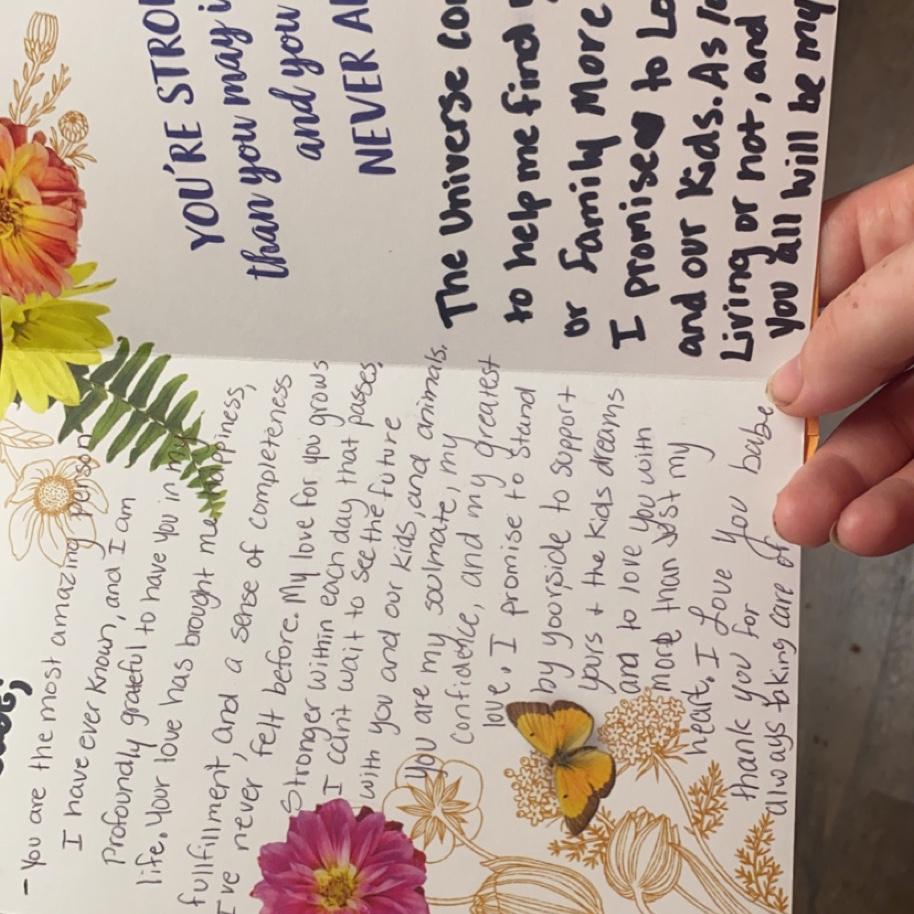 - You are the most amazing person
I have ever known, and I am
profoundly grateful to have you in my
life. Your love has brought me happiness,
fullfillment, and a sense of completeness
I've never felt before. My love for you grows
Stronger within each day that passes,
I can't wait to see the future
with you and our kids, and animals.
You are my soulmate, my
confidence, and my greatest
love. I promise to stand
by your side to support
yours + the kids dreams
and to love you with
more than just my
heart. I Love you babe
thank you for
always taking care of
YOU'RE STRO
than you may
and you
NEVER
The Universe
to help me find
or family More
I promise to
and our Kids. As
Living or not, and
you all will be my